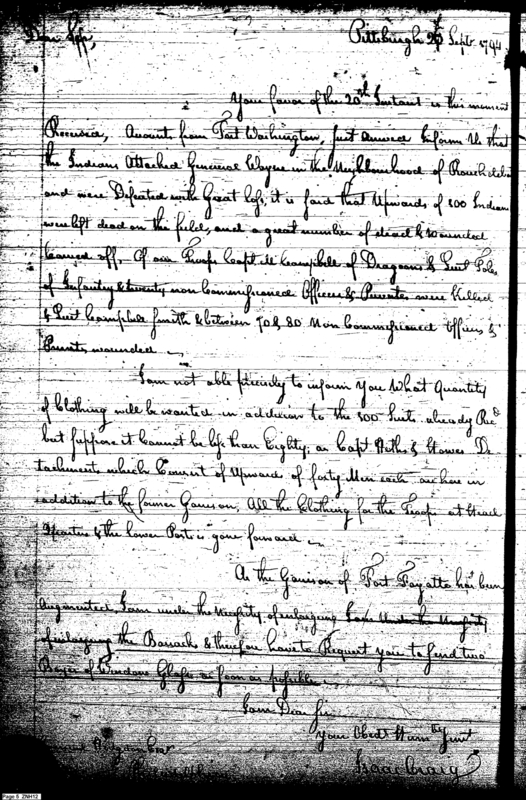 Dear Sir, Pittsburgh Sept 1794
Your favor of the 20th Instant is this moment
Received, Account from Fort Washington, Just arrived Inform Us that
the Indians Attacked General Wayne in the Neighbourhood of
and were Defeated with Great loss, it is said that Upwards of Indians
were left dead on the field, and a great number of dead & wounded
carried off, Of our Troops Capt M Campbell of Dragoons & Leut
of Infantry & twenty non Commissioned Officers & Privates were Killed
& Leut Campbele Smith & between 70 & 80 Non Commissioned Officers &
Privates wounded
I am not able precisely to inform You What Quantity
of Clothing will be wanted in addition to the 300 Suits already Recd
but suppose it Cannot be less than Eighty, as Capt & Howes De
tachments which Consist of Upwards of forty Men each are here in
addition to the former Garrison, All the Clothing for the Troops at Head
Quarters & the lower Posts is gone forward
As the Garrison of Fort Fayette has been
augmented I am under the Necessity of enlarging I am Under the Necessity
of enlarging the Barracks & therefore have to Request you to send two
Boxes of Window Glass as soon as possible
I am Dear Sir
Your Obedt Humble Servt
Isaac Craig
Page 5 ZNH12